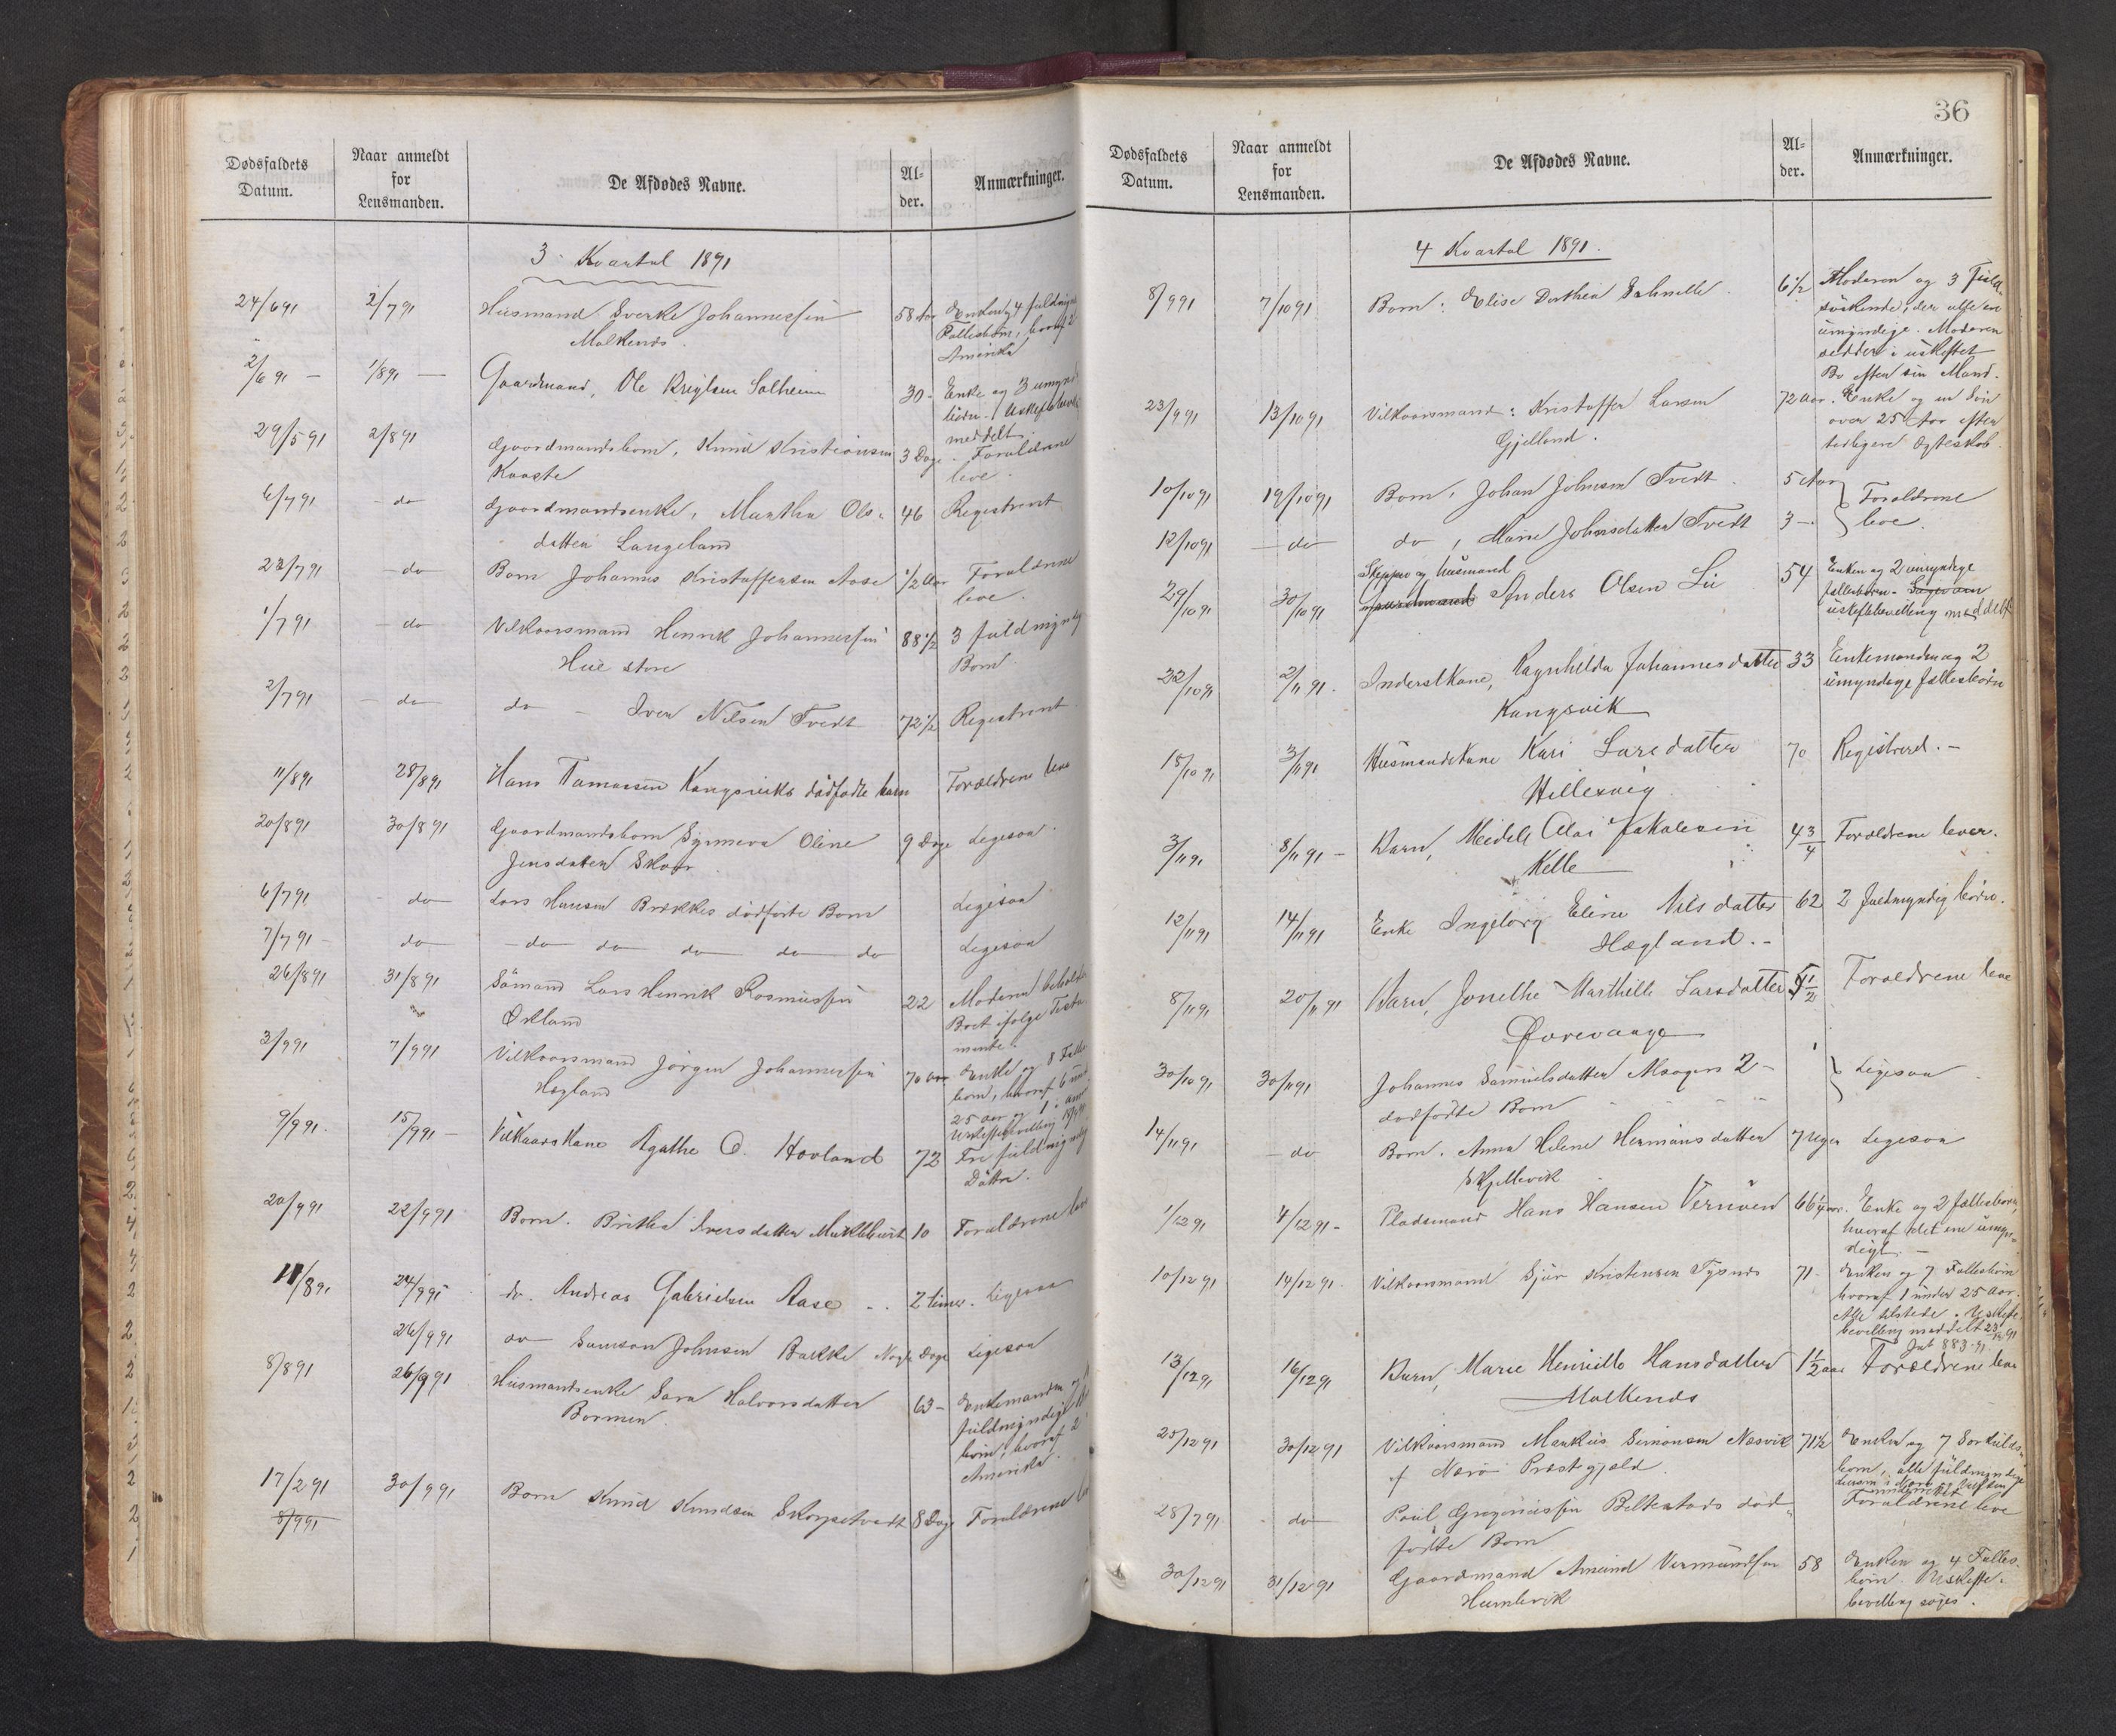 Dødsfaldets
Datum.
Naar anmeldt
for
Lensmanden.
De Afdødes Navne.
Al-
der.
Anmærkninger.
3 Kvartal 1891
24/6 91 2/7 91 Husmand Sverke Johannessen 58 Aar Enken og 4 fuldmyndige
Malkenes
Fællesbørn, hvoraf 2
Amerika
2/6 91 — 1/8 91 — Gaardmand, Ole Brigtsen Solheim 30 - Enke og 3 umynd
børn. Uskiftebevill
meddelt.
29/5 91 2/8 91 Gaardmandsbarn, Knud Kristiansen 3 Dage. Forældrene
Kaaste
leve.
6/7 91 — do Gaardmandsenke, Martha Ols- 46 Registreret
datter Langeland
23/7 91 — do Barn Johannes Kristoffersen Aase 1/2 Aar Forældrene
leve.
1/7 91 — do Vilkaarsmand Henrik Johannessen 88 1/2 3 fuldmyndig
Hue store
Børn.
2/7 91 — do do — Iver Nilsen Tvedt 72 1/2 Registreret
11/8 91 28/8 91 Hans Tamasen Kangsviks dødfødte barn Forældrene leve
20/8 91 30/8 91 Gaardmandsbarn Synneva Oline 9 Dage Ligesaa
Jensdatter Skaar
6/7 91 do Lars Hansen Brekkes dødfødte Barn Ligesaa
7/7 91 — do — do — do — do — do — do Ligesaa
26/8 91 31/8 91 Sömand Lars Henrik Rasmussen 22 Moderen beholder
Økland
Boet ifølge Testa
mente.
3/9 91 7/9 91 Vilkaarsmand Jørgen Johannessen 70 Aar Enke og 8 Fælles
Høgland
børn, hvoraf 6 und
25 aar og 1 i Amer
Uskiftebevilling
9/9 91. 15/9 91 — Vilkaarskone Agathe O. Hovland 72 Tre fuldmyndig
Døttre.
20/9 91 22/9 91 Barn. Britha Iversdatter Mukleburst 10 Forældrene leve
11/8 91 24/9 95 do. Andreas Gabrielsen Aase .. 2 timer. Ligesaa
26/9 91 do — Samson Johnsen Bakke Nogle Dage Ligesaa
8/8 91 26/9 91 Husmandsenke Sara Halvorsdatter 63 — Enkemanden og
Bormen.
fuldmyndige
børn, hvoraf 2
Amerika.
17/2 91 30/9 91 Barn Knud Knudsen Skorpetvedt 8 Dage Forældrene leve
8/9 91
36
Dødsfaldets
Datum.
Naar anmeldt
for
Lensmanden.
De Afdødes Navne.
Al-
der.
Anmærkninger.
4 Kvartal 1891.
8/9 91 7/10 91 Barn: Elise Dorthea Schnelle. 6 1/2 Moderen og 3 Fuld-
söskende, der alle ere
umyndige. Moderen
sidder i uskiftet
Bo efter sin Mand.
23/9 91 13/10 91 Vilkaarsmand: Kristoffer Larsen 72 Aar. Enke og en Søn
Gjelland.
over 25 Aar efter
tidligere Egteskab
10/10 91 19/10 91 Barn, Johan Johnsen Tvedt. 5 Aar Forældrene
12/10 91 — do — do, Marie Johnsdatter Tvedt 3 — leve.
Skipper og husmand
29/10 91 30/10 91 Gaardmand Anders Olsen Lie 54 Enken og 2 umyndige
fællesbørn. Søger om
uskiftebevilling meddelt
22/10 91 2/11 91. Inderstkone, Ragnhilda Johannesdatter 33 Enkemanden og 2
umyndige fællesbörn
Kangsvik
15/10 91 3/11 91 Husmandskone Kari Larsdatter 70 Registrered. —
Hillesvig
3/11 91 8/11 91 — Barn, Meidell Olai Jakobsen 4 3/4 Forældrene lever.
Helle
12/11 91 14/11 91 Enke Ingeborg Eline Nilsdatter 62 2 fuldmyndig børn.
Høgland. —
8/11 91 20/11 91 Barn, Jonethe Marthille Larsdatter 5 1/2 Forældrene leve
Øvrevaage
30/10 91 30/11 91 Johannes Samuelsdatter 2 — Ligesaa
dødfødte Børn
14/11 91 — do Barn. Anna Helene Hermansdatter 7 Uger Ligesaa
Skjellevik
1/12 91 4/12 91 — Pladsmand Hans Hansen Vernøen 66 1/4 aar. Enke og 2 fællesbørn,
hvoraf det ene umyn-
digt. —
10/12 91 14/12 91. Vilkaarsmand Sjur Kristensen Tysnes 71. Enken og 7 Fællesbørn
hvoraf 1 under 25 Aar.
Alle tilstede. Uskifte
bevilling meddelt 23/12 91
Jnl 883-91.
13/12 91 16/12 91 Barn, Marie Henriette Hansdatter 1 1/2 aar Forældrene leve
Malkenes
25/12 91 30/12 91 Vilkaarsmand Markus Simonsen Nesvik 71 1/2 Enken og 7 Særkuld-
af Nærø Præstegjæld.
børn, alle fuldmyndige
Forældrene leve
28/7 91 — do Poul Gregoriussen Belkestads død-
fødte Barn
30/12 91 31/12 91 Gaardmand Amund Vermundsen 58 Enken og 4 Fælles
Humlevik
børn. Uskifte-
bevilling søges.